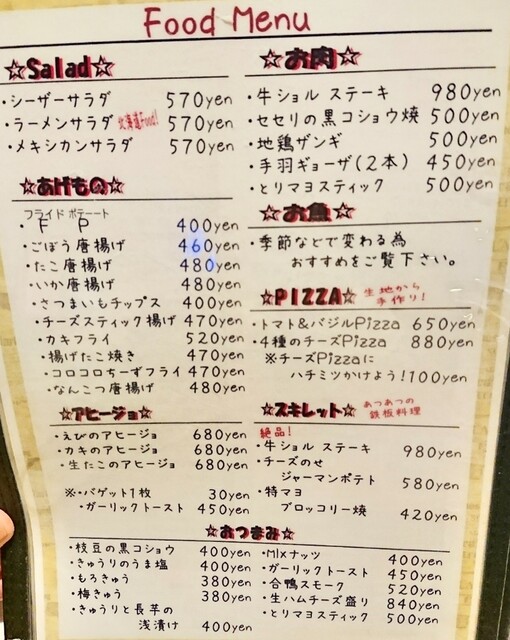 Food Menu
☆Salad☆
・シーザーサラダ 570yen
・ラーメンサラダ 北海道Food! 570yen
・メキシカンサラダ 570yen
☆あげもの☆
フライド ポテート
・F P 400yen
・ごぼう唐揚げ 460yen
・たこ唐揚げ 480yen
・いか唐揚げ 480yen
・さつまいもチップス 400yen
・チーズスティック揚げ 470yen
・カキフライ 520yen
・揚げたこ焼き 470yen
・コロコロちーずフライ 470yen
・なんこつ唐揚げ 480yen
☆アヒージョ☆
・えびのアヒージョ 680yen
・カキのアヒージョ 680yen
・生たこのアヒージョ 680yen
※・バゲット1枚 30yen
・ガーリックトースト 450yen
☆お肉☆
・牛ショル ステーキ 980yen
・セセリの黒コショウ焼 500yen
・地鶏ザンギ 500yen
・手羽ギョーザ(2本) 450yen
・とりマヨスティック 500yen
☆お魚☆
・季節などで変わる為
おすすめをご覧下さい。
☆PIZZA☆ 生地から
手作り!
・トマト&バジルPizza 650yen
・4種のチーズPizza 880yen
※チーズPizzaに
ハチミツかけよう!100yen
☆スキレット☆ あつあつの
鉄板料理
絶品!
・牛ショル ステーキ 980yen
・チーズのせ
ジャーマンポテト 580yen
・特マヨ
ブロッコリー焼 420yen
☆おつまみ☆
・枝豆の黒コショウ 400yen
・きゅうりのうま塩 400yen
・もろきゅう 380yen
・梅きゅう 380yen
・きゅうりと長芋の
浅漬け 400yen
・MIXナッツ 400yen
・ガーリックトースト 450yen
・合鴨スモーク 520yen
・生ハムチーズ盛り 840yen
・とりマヨスティック 500yen